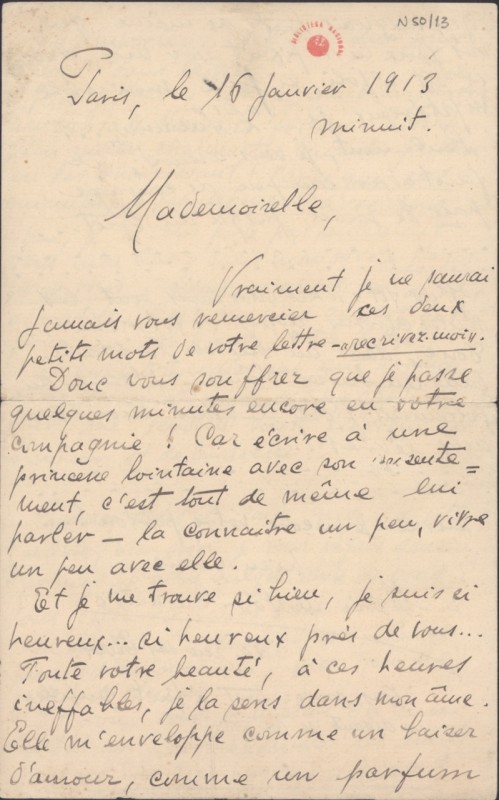 N50/13
BIBLIOTECA NACIONAL
Paris, le 16 Janvier 1913
minuit.
Mademoiselle,
Vraiment je ne saurai
jamais vous remercier ces deux
petits mots de votre lettre - «recrivez-moi».
Donc vous souffrez que je passe
quelques minutes encore en votre
compagnie! Car écrire à une
princesse lointaine avec son consente=
ment, c'est tout de même lui
parler — la connaître un peu, vivre
un peu avec elle.
Et je me trouve si bien, je suis si
heureux... si heureux près de vous...
Toute votre beauté, à ces heures
ineffables, je la sens dans mon âme.
Elle m'enveloppe comme un baiser
d'amour, comme un parfum